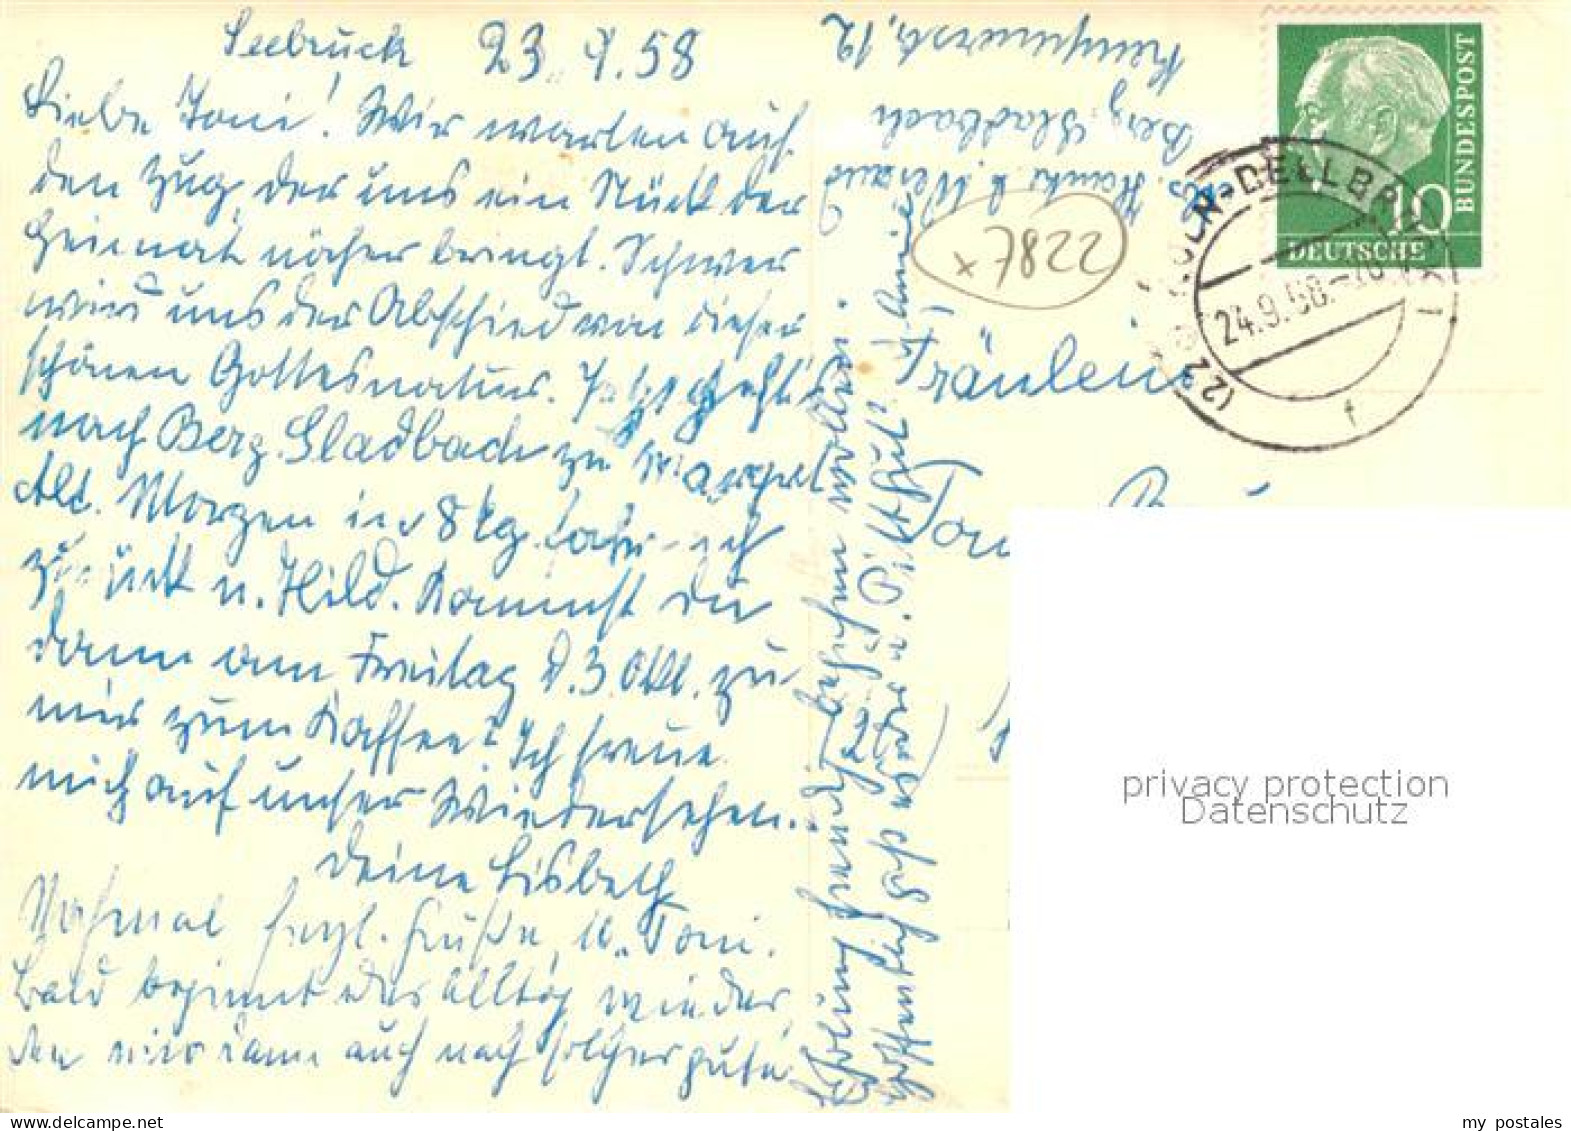 Seebruck 23.9.58
Liebe Toni! Wir warten auf
den Zug, der uns ein Stück der
Heimat näher bringt. Schwer
wird uns der Abschied von dieser
schönen Gottesnatur. Jetzt geht's
nach Berg. Gladbach zu
Morgen fahr ich
zurück u. Hild. Kommst Du
dann am Freitag d. 3. Okt. zu
mir zum Kaffee? Ich freue
mich auf unser Wiedersehen.
Deine Lisbeth
Nochmal herzl. Grüße, Toni.
Bald beginnt der Alltag wieder,
den wir dann auch nach solcher gute
Erholung freudig
Hoffentlich u.
Berg. Gladbach
12
228f x
Fräulein
Toni
DEUTSCHE
BUNDESPOST
10
KÖLN-DELLBRÜCK 1
24.9.58.
f
privacy protection
Datenschutz
my postales